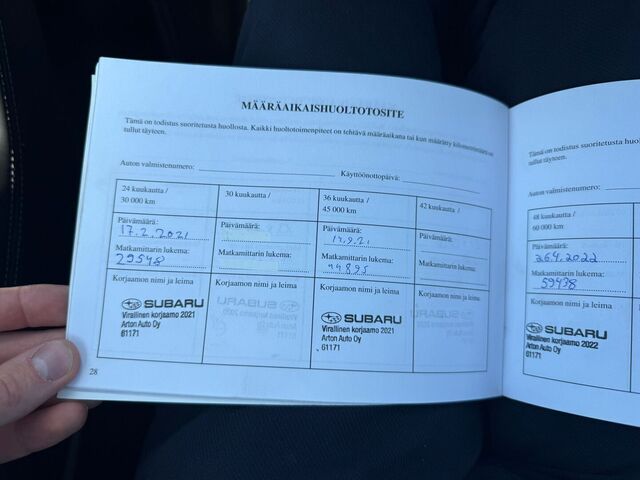 MÄÄRÄAIKAISHUOLTOTOSITE
Tämä on todistus suoritetusta huollosta. Kaikki huoltotoimenpiteet on tehtävä määräaikana tai kun määrätty kilometrimäärä on
tullut täyteen.
Auton valmistenumero:
Käyttöönottopäivä:
24 kuukautta /
30 000 km
30 kuukautta /
36 kuukautta /
45 000 km
42 kuukautta /
Päivämäärä:
17.2.2021
Päivämäärä:
Päivämäärä:
14.9.21
Päivämäärä:
Matkamittarin lukema:
29548
Matkamittarin lukema:
Matkamittarin lukema:
44895
Matkamittarin lukema:
Korjaamon nimi ja leima
SUBARU
Virallinen korjaamo 2021
Arton Auto Oy
61171
Korjaamon nimi ja leima
Korjaamon nimi ja leima
SUBARU
Virallinen korjaamo 2021
Arton Auto Oy
61171
Korjaamon nimi ja leima
28
Tämä on todistus suoritetusta
tullut täyteen.
Auton valmistenumero:
48 kuukautta /
60 000 km
Päivämäärä:
26.4.2022
Matkamittarin lukema:
59438
Korjaamon nimi ja leima
SUBARU
Virallinen korjaamo 2022
Arton Auto Oy
61171